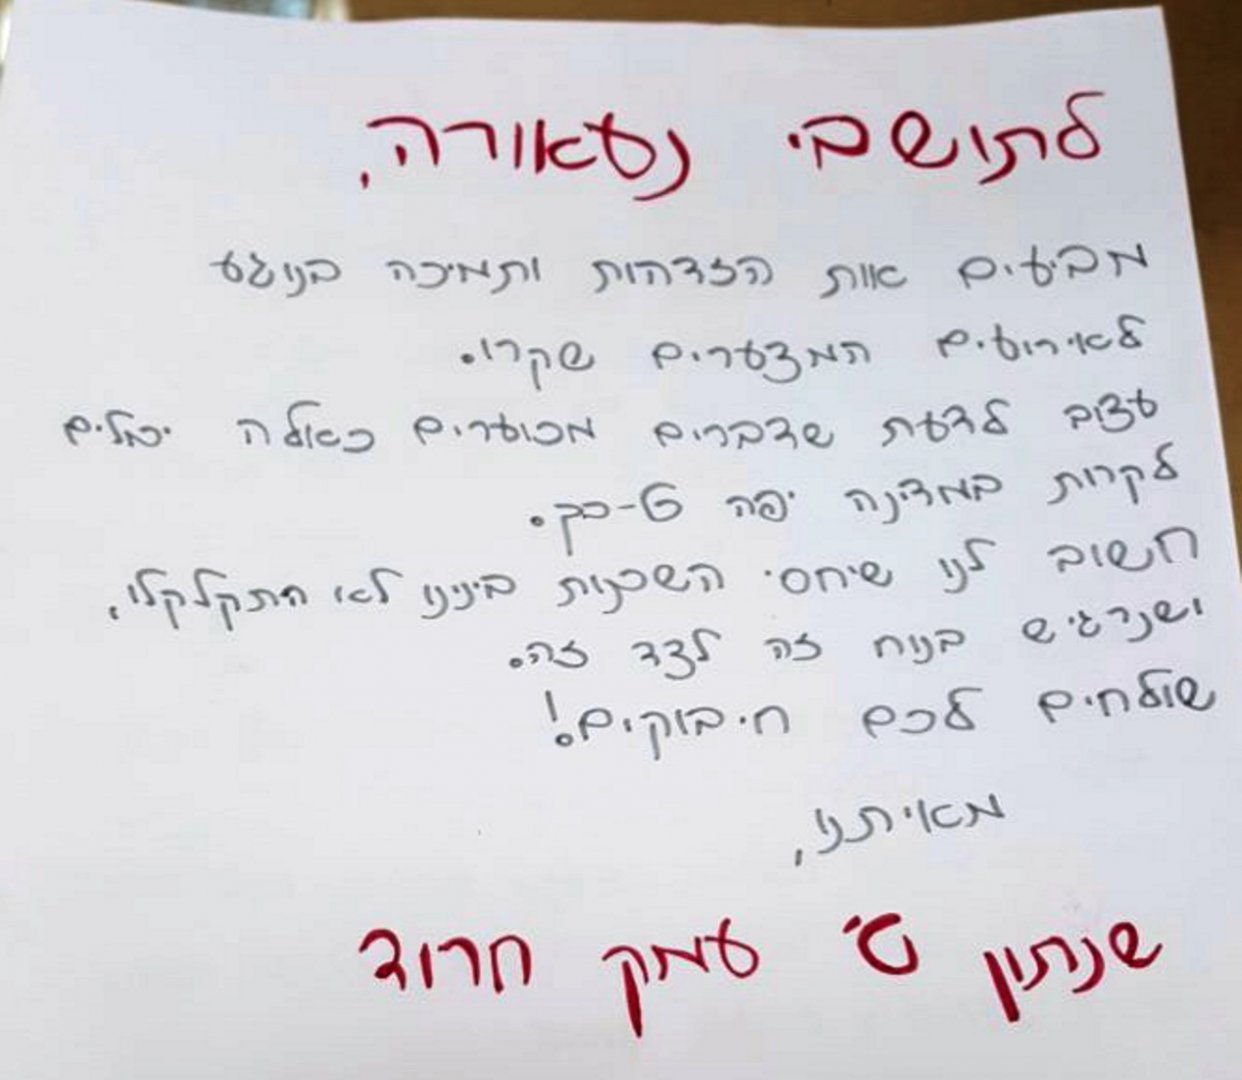 לתושבי נעאורה,
מביעים אות הזדהות ותמיכה בנוגע
לאירועים המצערים שקרו.
עצוב לדעת שדברים מכוערים כאולה יכולים
לקרות במדינה יפה כ-כך.
חשוב לנו שיחסי השכנות ביננו לא התקלקלו,
ושנרגיש בנוח זה לצד זה.
שולחים לכם חיבוקים!
מאיתנו,
שנתון ט' עמק חרוד